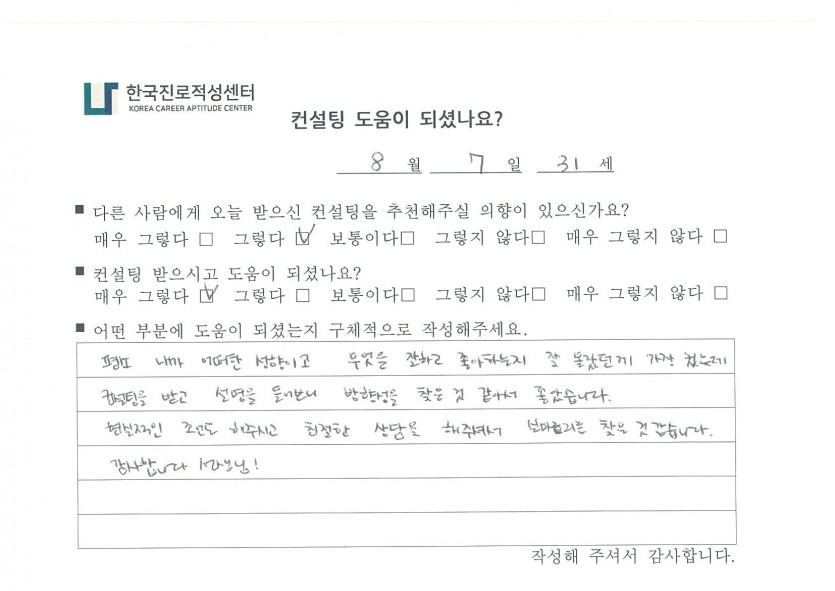 한국진로적성센터
KOREA CAREER APTITUDE CENTER
컨설팅 도움이 되셨나요?
8 월 7 일 31 세
■ 다른 사람에게 오늘 받으신 컨설팅을 추천해주실 의향이 있으신가요?
매우 그렇다 □ 그렇다 ☑ 보통이다□ 그렇지 않다□ 매우 그렇지 않다 □
■ 컨설팅 받으시고 도움이 되셨나요?
매우 그렇다 ☑ 그렇다 □ 보통이다□ 그렇지 않다□ 매우 그렇지 않다 □
■ 어떤 부분에 도움이 되셨는지 구체적으로 작성해주세요.
내가 어떠한 성향이고 무엇을 잘하고 좋아하는지 잘 몰랐던게 가장 컸는데
컨설팅을 받고 설명을 들어보니 방향성을 찾은 것 같아서 좋았습니다.
현실적인 조언도 해주시고 친절한 상담을 해주셔서 찾은 것 같습니다.
감사합니다
작성해 주셔서 감사합니다.